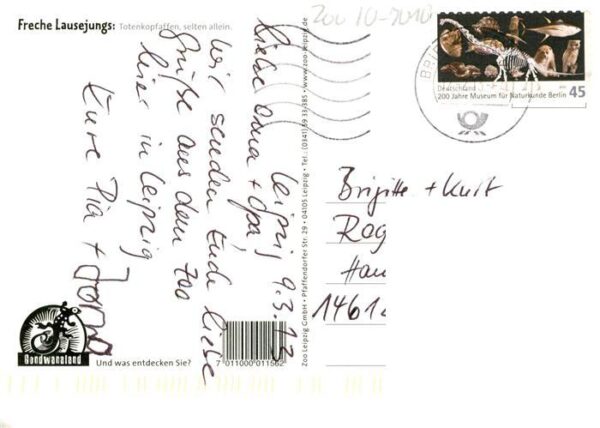 Freche Lausejungs: Totenkopfaffen, selten allein.
Zoo 10-2010
Leipzig 9.3.13
Liebe Oma + Opa,
wir senden Euch liebe
Grüße aus dem Zoo
hier in Leipzig
Eure Pia + Jonna
Gondwanaland
Und was entdecken Sie?
7 011000 011562
Zoo Leipzig GmbH • Pfaffendorfer Str. 29 • 04105 Leipzig • Tel.: (0341) 59 33/385 • www.zoo-leipzig.de
Deutschland
200 Jahre Museum für Naturkunde Berlin 45
Brigitte + Kurt
Rog
Hau
14612